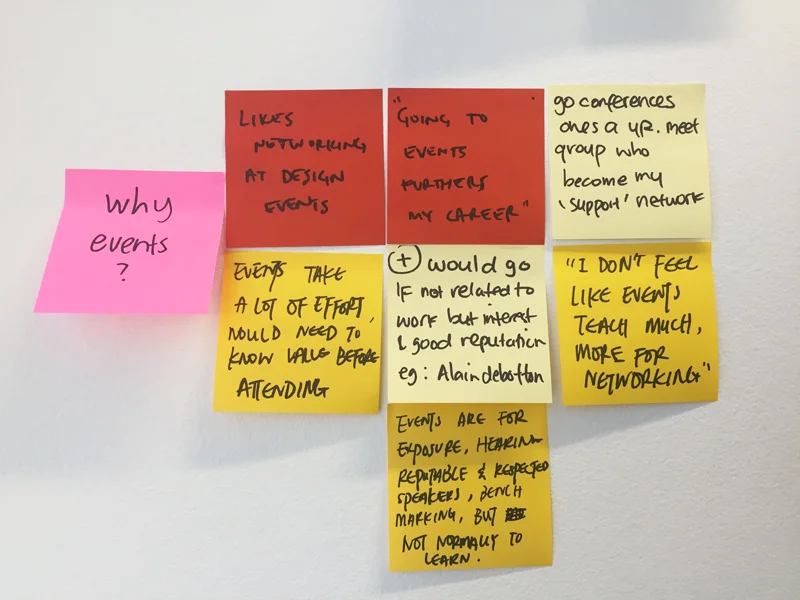 why
events
?
LIKES
NETWORKING
AT DESIGN
EVENTS
"GOING TO
EVENTS
FURTHERS
MY CAREER"
go conferences
ones a yr. meet
group who
become my
'support' network
EVENTS TAKE
A LOT OF EFFORT,
WOULD NEED TO
KNOW VALUE BEFORE
ATTENDING
+ would go
if not related to
work but interest
& good reputation
eg: Alain debotton
"I DON'T FEEL
LIKE EVENTS
TEACH MUCH,
MORE FOR
NETWORKING"
EVENTS ARE FOR
EXPOSURE, HEARING
REPUTABLE & RESPECTED
SPEAKERS, BENCH
MARKING, BUT
NOT NORMALLY TO
LEARN.